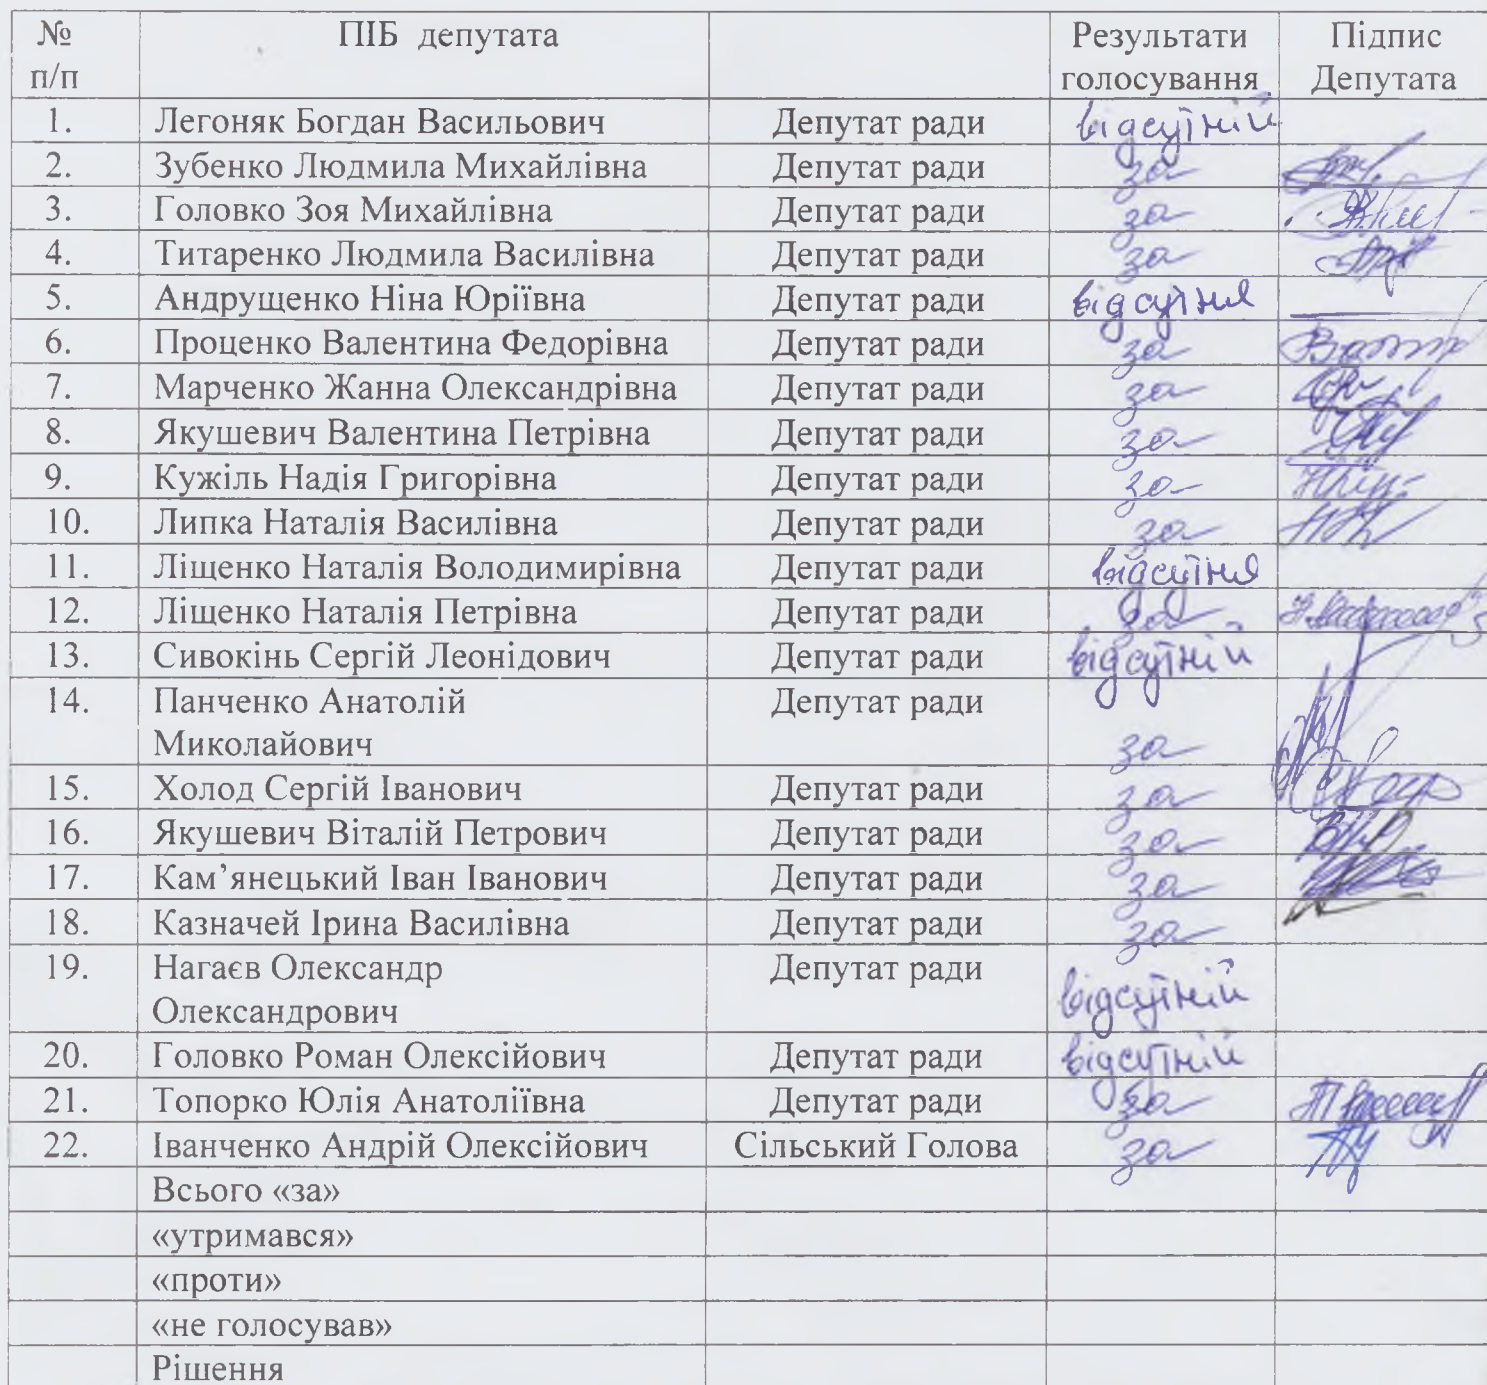 № ПІБ депутата Результати Підпис
п/п голосування Депутата
1. Легоняк Богдан Васильович Депутат ради відсутній
2. Зубенко Людмила Михайлівна Депутат ради за
3. Головко Зоя Михайлівна Депутат ради за
4. Титаренко Людмила Василівна Депутат ради за
5. Андрущенко Ніна Юріївна Депутат ради відсутня
6. Проценко Валентина Федорівна Депутат ради за
7. Марченко Жанна Олександрівна Депутат ради за
8. Якушевич Валентина Петрівна Депутат ради за
9. Кужіль Надія Григорівна Депутат ради за
10. Липка Наталія Василівна Депутат ради за
11. Ліщенко Наталія Володимирівна Депутат ради відсутня
12. Ліщенко Наталія Петрівна Депутат ради за
13. Сивокінь Сергій Леонідович Депутат ради відсутній
14. Панченко Анатолій Депутат ради
Миколайович за
15. Холод Сергій Іванович Депутат ради за
16. Якушевич Віталій Петрович Депутат ради за
17. Кам’янецький Іван Іванович Депутат ради за
18. Казначей Ірина Василівна Депутат ради за
19. Нагаєв Олександр Депутат ради
Олександрович відсутній
20. Головко Роман Олексійович Депутат ради відсутній
21. Топорко Юлія Анатоліївна Депутат ради за
22. Іванченко Андрій Олексійович Сільський Голова за
Всього «за»
«утримався»
«проти»
«не голосував»
Рішення